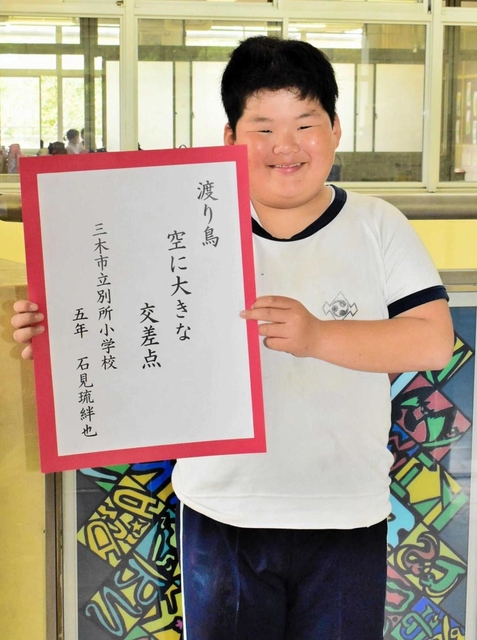 渡り鳥
空に大きな
交差点
三木市立別所小学校
五年 石見琉絆也